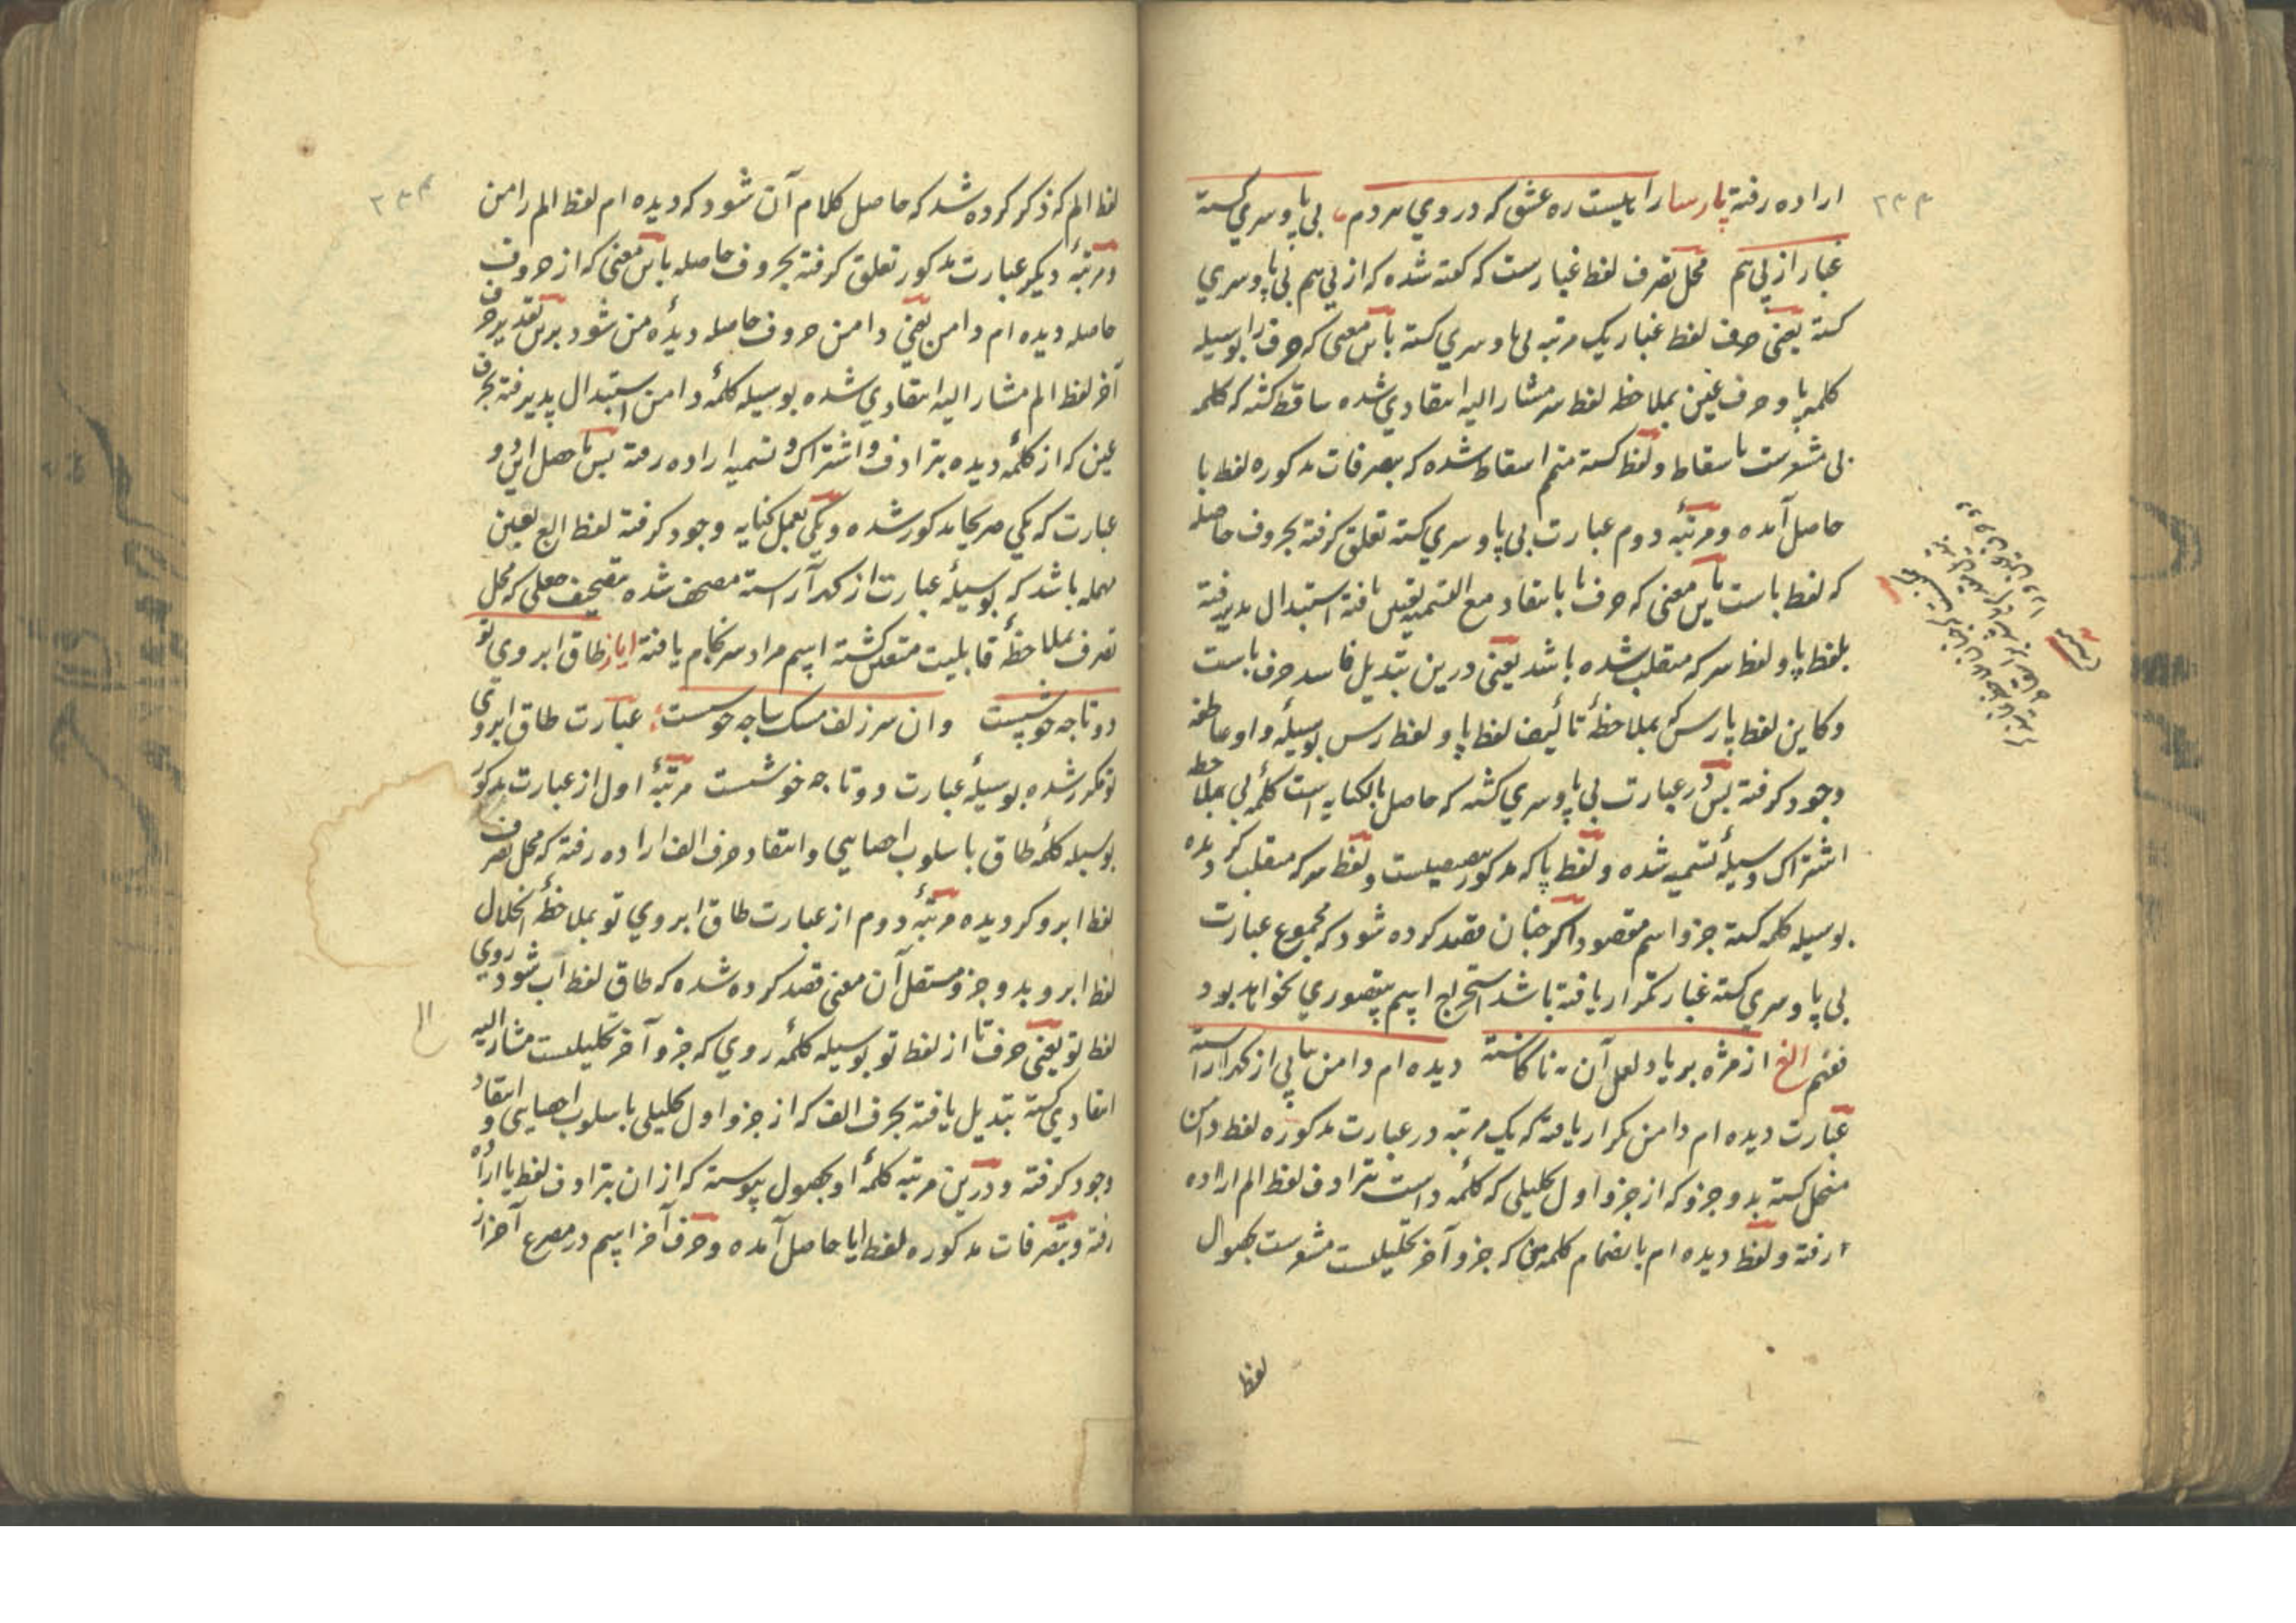 اراده رفته پارسا راهیست ره عشق که در وی هر دم بی پا و سری گشته
غبار از پی هم محل تصرف لفظ غبارست که گفته شده که از پی هم بی پا و سری
گشته یعنی حرف لفظ غبار یک مرتبه بی پا و سری گشته باین معنی که حرف را بوسیله
کلمه پا و حرف غین بملاحظه لفظ سر مشار الیه انتقادی شده ساقط گشته که کلمه
بی مشعرست باسقاط و لفظ گشته متمم اسقاط شده که بتصرفات مذکوره لفظ با
حاصل آمده و مرتبهٔ دوم عبارت بی پا و سری گشته تعلق گرفته بحروف حاصله
که لفظ باست باین معنی که حرف با بانتقاد مع التسمیه تعین یافته استبدال پذیرفته
بلفظ پا و لفظ سر که منقلب شده باشد یعنی درین تبدیل فاسد حرف باست
و کاین لفظ پارس که بملاحظهٔ تألیف لفظ پا و لفظ رس بوسیلهٔ واو عاطفه
وجود گرفته پس در عبارت بی پا و سری گشته که حاصل بالکنایه است کلمهٔ بی بملاحظه
اشتراک وسیلهٔ تسمیه شده و لفظ پا که مذکور بتنصیصست و لفظ سر که منقلب گردیده
بوسیله کلمه گشته جزو اسم مقصود اگر چنان قصد کرده شود که مجموع عبارت
بی پا و سری گشته غبار تکرار یافته باشد استخراج اسم منصوری نخواهد بود
الغ از مژه بر یاد لعل آن دیده ام دامن پایی از گهر آراسته
عبارت دیده ام دامن تکرار یافته که یک مرتبه در عبارت مذکوره لفظ دامن
منحل گشته بدو جزو که از جزو اول تحلیلی که کلمهٔ داست بترادف لفظ الم اراده
رفته و لفظ دیده ام بانضمام کلمه من که جزو آخر تحلیلست مشعرست بحصول
لفظ
لفظ الم که ذکر کرده شد که حاصل کلام آن شود که دیده ام لفظ الم را من
و مرتبهٔ دیگر عبارت مذکور تعلق گرفته بحروف حاصله باین معنی که از حروف
حاصله دیده ام دامن یعنی دامن حروف حاصله دیدهٔ من شود برین تقدیر حرف
آخر لفظ الم مشار الیه انتقادی شده بوسیله کلمهٔ دامن استبدال پذیرفته بحرف
عین که از کلمهٔ دیده بترادف و اشتراک و تسمیه اراده رفته پس ما حصل این دو
عبارت که یکی صریحا مذکور شده و یکی بعمل کنایه وجود گرفته لفظ الع بعین
مهمله باشد که بوسیلهٔ عبارت از گهر آراسته مصحف شده بتصحیف جعلی که محل
تصرف بملاحظهٔ قابلیت متعین گشته اسم مراد سرانجام یافته ایاز طاق ابروی تو
دوتا چه خوشست وان سر زلف مشک سا چه خوشست عبارت طاق ابروی
تو مکرر شده بوسیلهٔ عبارت دوتا چه خوشست مرتبهٔ اول از عبارت مذکور
بوسیله کلمهٔ طاق باسلوب احصایی و انتقاد حرف الف اراده رفته که محل تصرف
لفظ ابرو گردیده مرتبهٔ دوم از عبارت طاق ابروی تو بملاحظهٔ انحلال
لفظ ابرو بدو جزو مستقل آن معنی قصد کرده شده که طاق لفظ اب شود روی
لفظ تو یعنی حرف تا از لفظ تو بوسیله کلمهٔ روی که جزو آخر تحلیلست مشار الیه
انتقادی گشته تبدیل یافته بحرف الف که از جزو اول تحلیلی باسلوب احصایی و انتقاد
وجود گرفته و درین مرتبه کلمهٔ او بحصول پیوسته که از ان بترادف لفظ یا اراده
رفته و بتصرفات مذکوره لفظ ایا حاصل آمده و حرف آخر اسم در مصرع آخر از